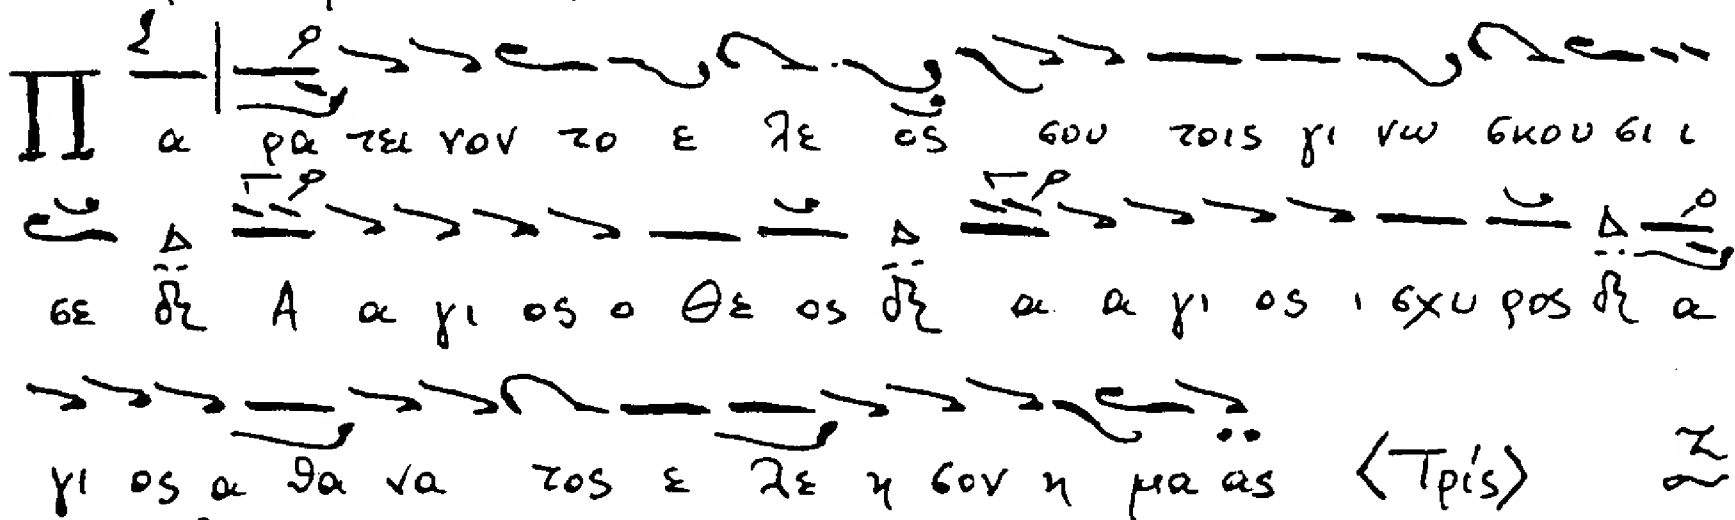 Πα ρα τει νον το ε λε ος σου τοις γι νω σκου σι ι
σε δι Α α γι ος ο Θε ος δι α α γι ος ι σχυ ρος δι α
γι ος α θα να τος ε λε η σον η μα ας 〈Τρίς〉